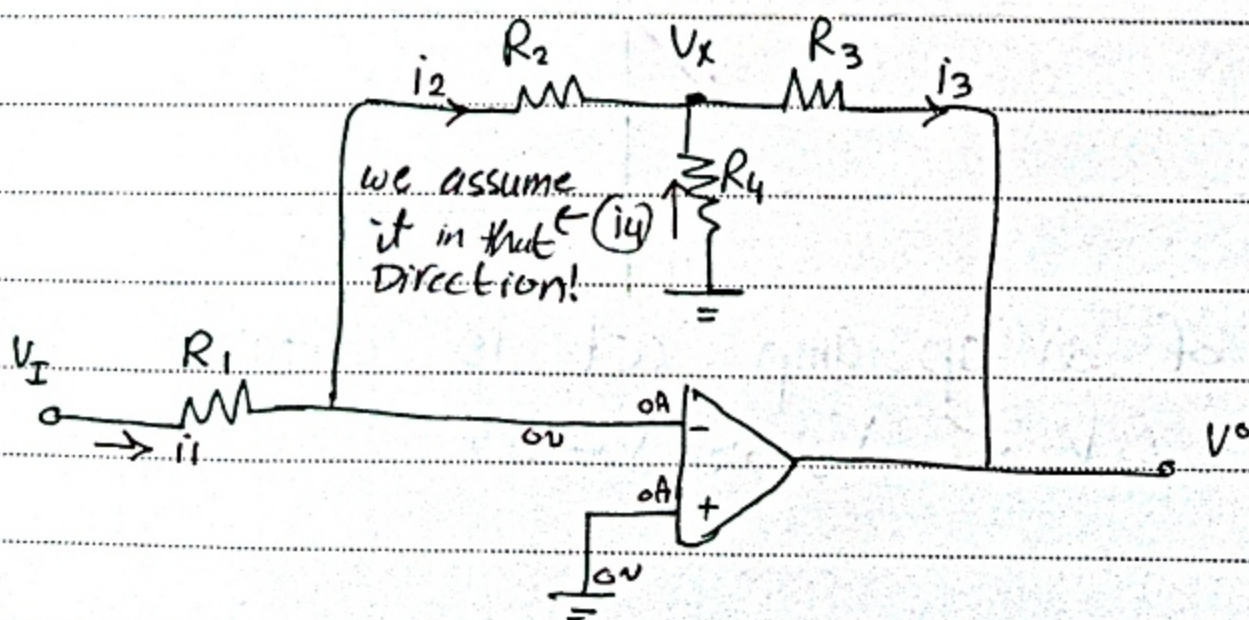 R2
Vx
R3
i2
i3
we assume
it in that ← i4
Direction!
R4
VI
R1
i1
0A
-
0v
0A
+
0v
Vo